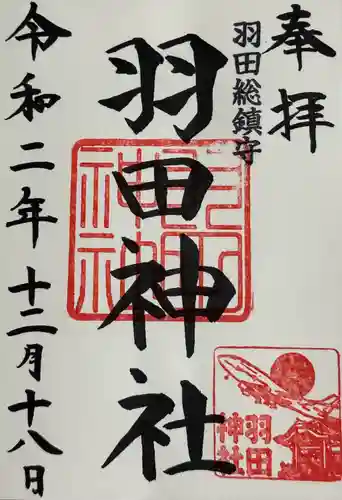 奉拝
羽田総鎮守
羽田神社
令和二年十二月十八日
羽田神社
羽田
神社